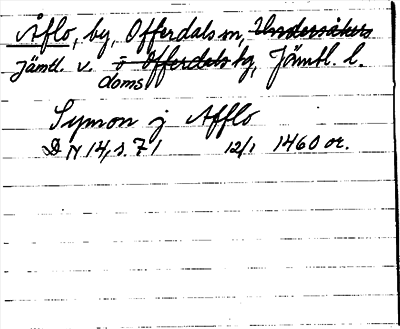 Åflo, by, Offerdals sn, Undersåkers
Jämtl. v. o Offerdals tg, Jämtl. l.
doms
Symon j Afflo
D N 14, s. 71 12/1 1460 or.